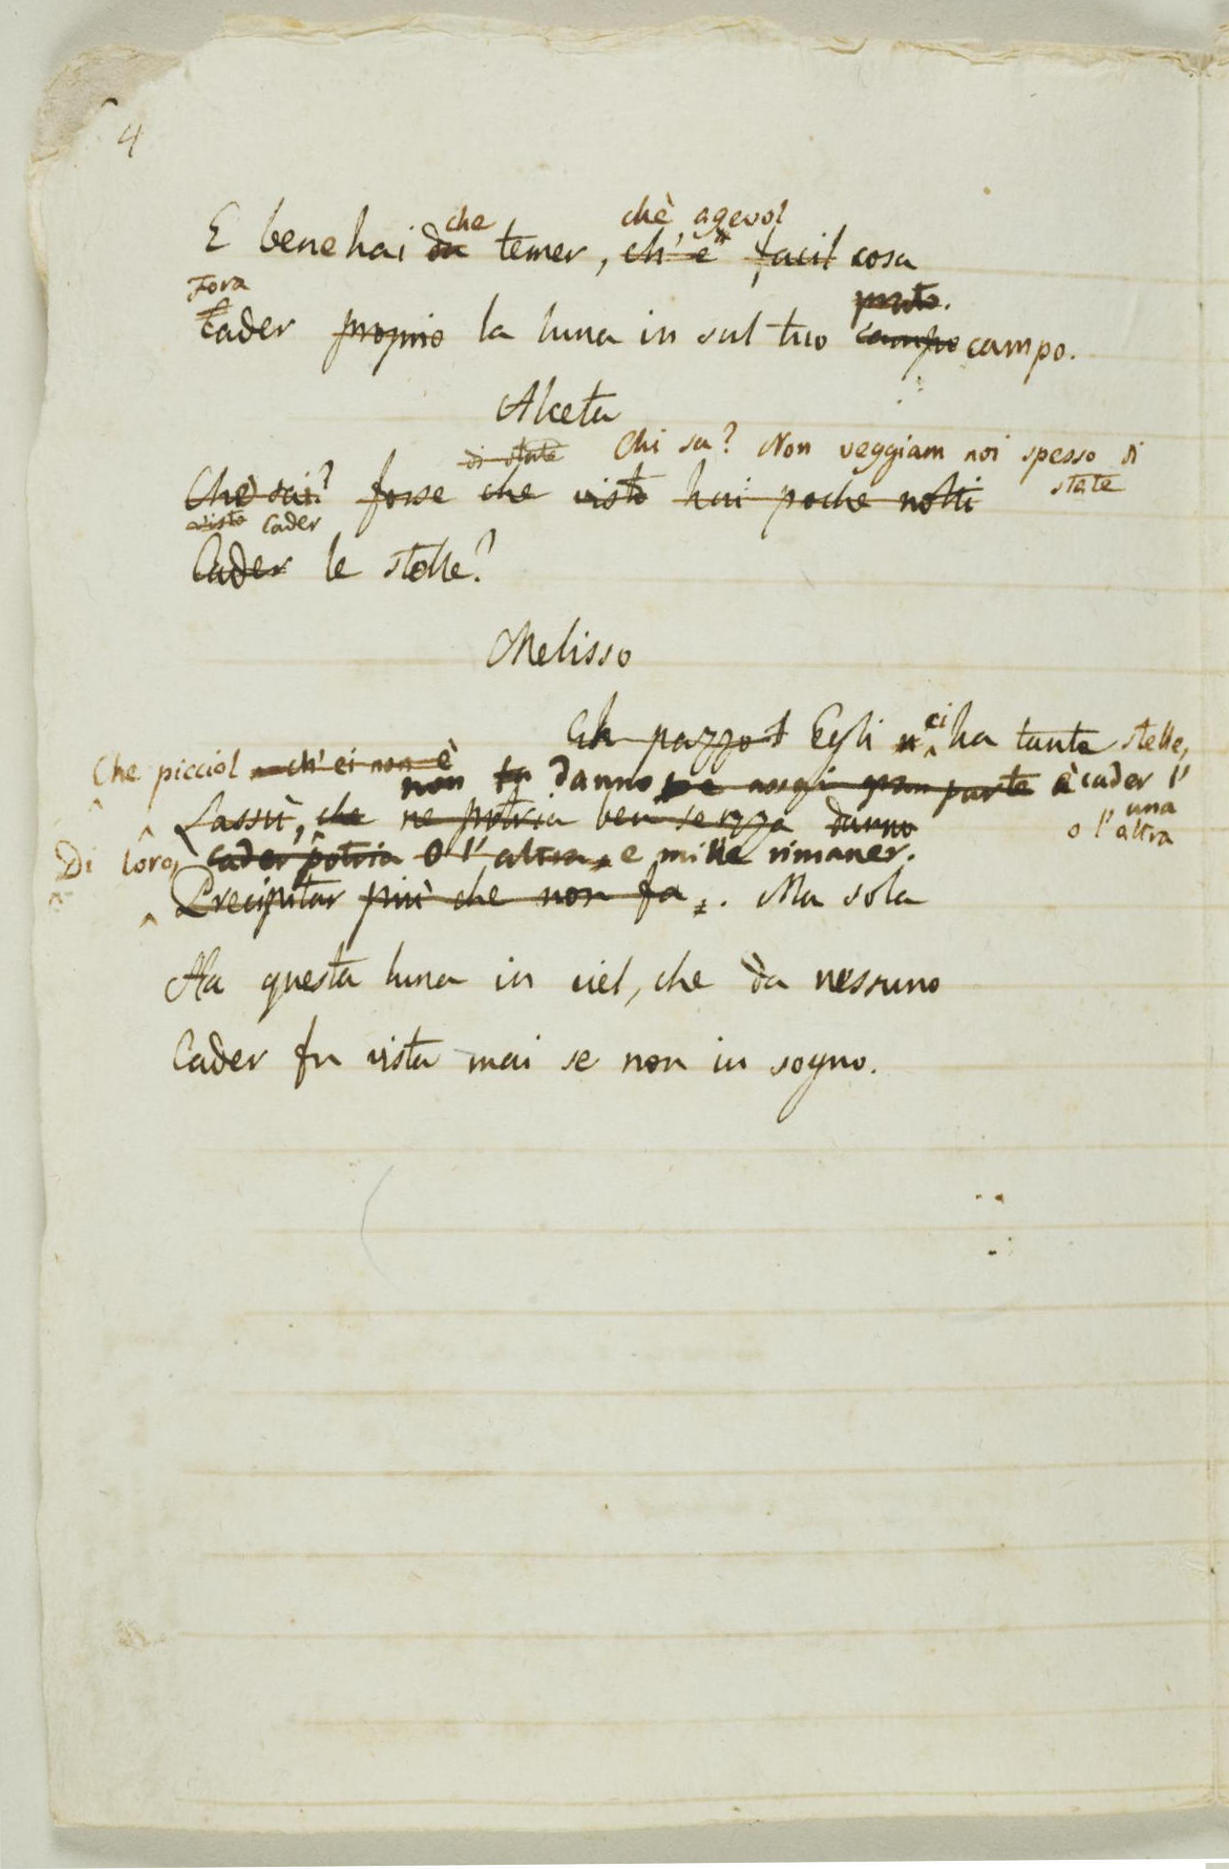 4
che chè, agevol
E bene hai da temer, ch'è facil cosa
Fora prato.
Cader proprio la luna in sul tuo campo campo.
Alceta
di state Chi sa? Non veggiam noi spesso di
state
Che sai? forse che visto hai poche notti
visto Cader
Cader le stelle?
Melisso
Eh pazzo! Egli n ci ha tante stelle,
Che picciol ch'ei non è
non fa danno assai gran parte è cader l'
una
Lassù, che ne potria ben senza danno
o l'altra
Di loro, cader potria o l'altra, e mille rimaner.
Precipitar più che non fa. Ma sola
Ha questa luna in ciel, che da nessuno
Cader fu vista mai se non in sogno.